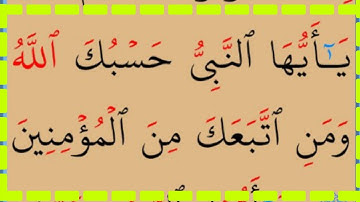 يَـٰٓأَيُّهَا ٱلنَّبِىُّ حَسۡبُكَ ٱللَّهُ
وَمَنِ ٱتَّبَعَكَ مِنَ ٱلۡمُؤۡمِنِينَ